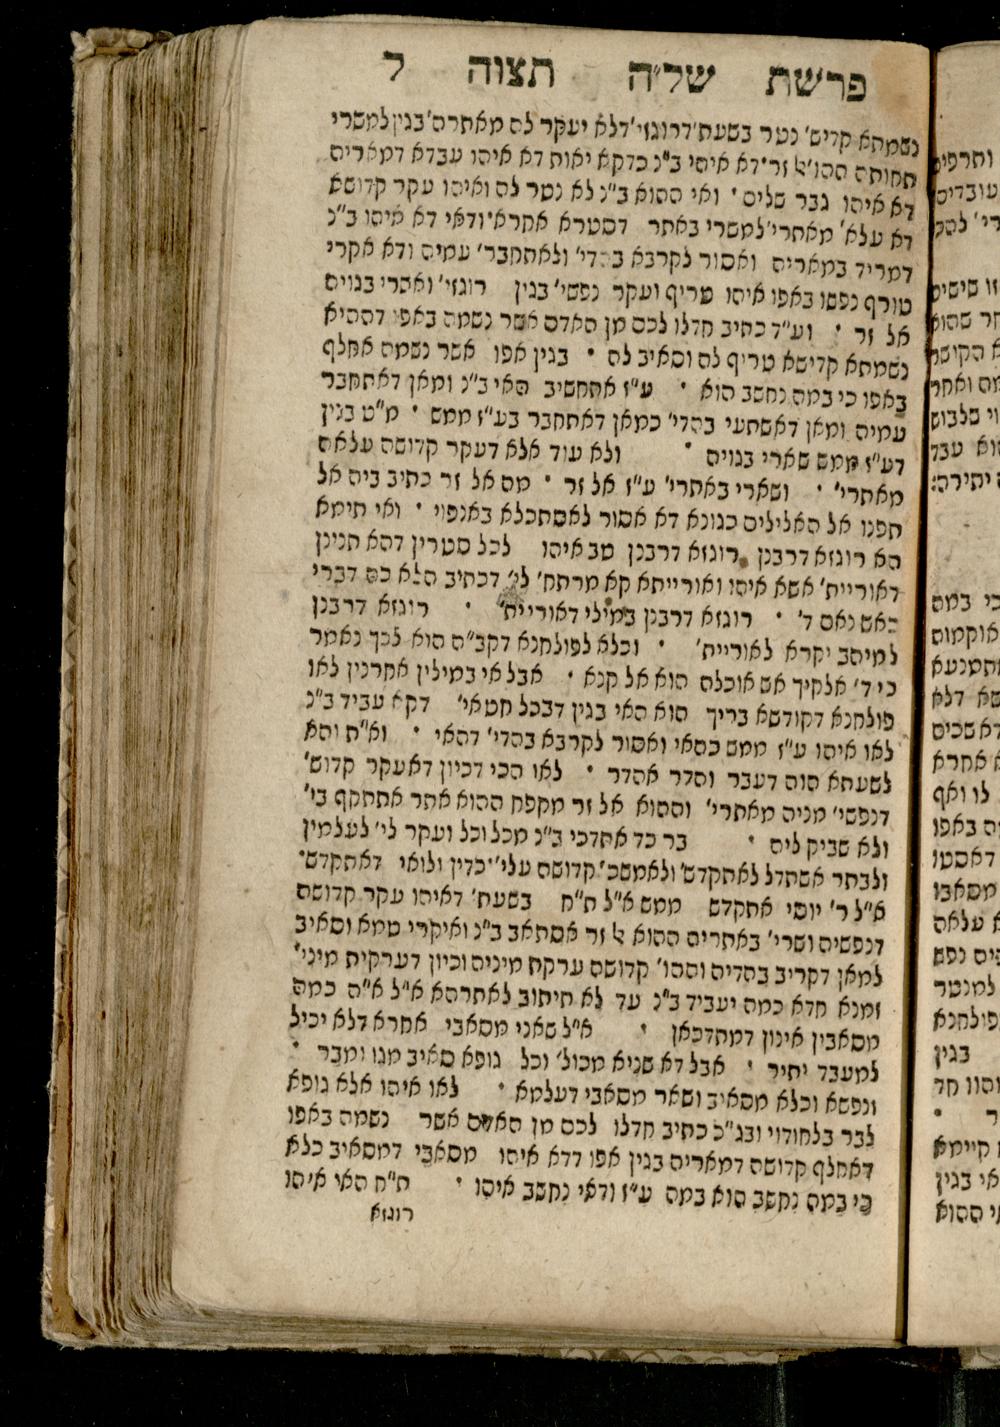 פרשת של״ה תצוה ל
נשמתא קדיש' נטר בשעת' דרוגזי' דלא יעקר לה מאתרה' בגין למשרי
תחותה ההו' אל זר · דא איהי ב״נ כדקא יאות דא איהו עבדא דמאריה
דא איהו גבר שלים · ואי ההוא ב״נ לא נטר לה ואיהו עקר קדושא
דא עלא' מאתרי' למשרי באתר דסטרא אחרא ודאי דא איהו ב״נ
דמריד במאריה ואסור לקרבא בהדי' ולאתחבר' עמיה ודא אקרי
טורף נפשו באפו איהו טריף ועקר נפשי' בגין רוגזי' ואשרי בגויה
אל זר · וע״ד כתיב חדלו לכם מן האדם אשר נשמה באפו דההיא
נשמתא קדישא טריף לה וסאיב לה · בגין אפו אשר נשמה אחלף
באפו כי במה נחשב הוא · ע״ז אתחשיב האי ב״נ ומאן דאתחבר
עמיה ומאן דאשתעי בהדי' כמאן דאתחבר בע״ז ממש · מ״ט בגין
דע״ז ממש שארי בגויה · ולא עוד אלא דעקר קדושה עלאה
מאתרי' · ושארי באתרי' ע״ז אל זר · מה אל זר כתיב ביה אל
תפנו אל האלילים כגונא דא אסור לאסתכלא באנפוי · ואי תימא
הא רוגזא דרבנן רוגזא דרבנן טב איהו לכל סטרין דהא תנינן
דאוריית' אשא איהו ואורייתא קא מרתח' לי' דכתיב הלא כה דברי
כאש נאם ד' · רוגזא דרבנן במילי דאוריית' · רוגזא דרבנן
למיהב יקרא לאוריית' · וכלא לפולחנא דקב״ה הוא לכך נאמר
כי ד' אלקיך אש אוכלה הוא אל קנא · אבל אי במילין אחרנין לאו
פולחנא דקודשא בריך הוא האי בגין דבכל חטאי' דקא עביד ב״נ
לאו איהו ע״ז ממש כהאי ואסור לקרבא בהדי' דהאי · וא״ת והא
לשעתא הוה דעבר והדר אהדר · לאו הכי דכיון דאעקר קדוש'
דנפשי' מניה מאתרי' וההוא אל זר מקפח ההוא אתר אתתקף בי'
ולא שביק ליה · בר כד אתדכי ב״נ מכל וכל ועקר לי' לעלמין
ולבתר אשתדל לאתקדש' ולאמשכ' קדושה עלי' כדין ולואי דאתקדש ·
א״ל ר' יוסי אתקדש ממש א״ל ת״ח בשעת' דאיהו עקר קדושה
דנפשיה ושרי' באתריה ההוא אל זר אסתאב ב״נ ואיקרי טמא וסאיב
למאן דקריב בהדיה וההו' קדושה ערקת מיניה וכיון דערקית מיני'
זמנא חדא כמה יעביד ב״נ עד לא תיתוב לאתרהא א״ל א״ה כמה
מסאבין אינון דמתדכאן · א״ל שאני מסאבי אחרא דלא יכיל
למעבד יתיר · אבל דא שניא מכול' וכל גופא סאיב מגו ומבר ·
ונפשא וכלא מסאיב ושאר מסאבי דעלמא · לאו איהו אלא גופא
לבר בלחודוי ובג״כ כתיב חדלו לכם מן האדם אשר נשמה באפו
דאחלף קדושה דמאריה בגין אפו דדא איהו מסאבי דמסאיב כלא
כי במה נחשב הוא במה ע״ז ודאי נחשב איהו · ת״ח האי איהו
רוגזא